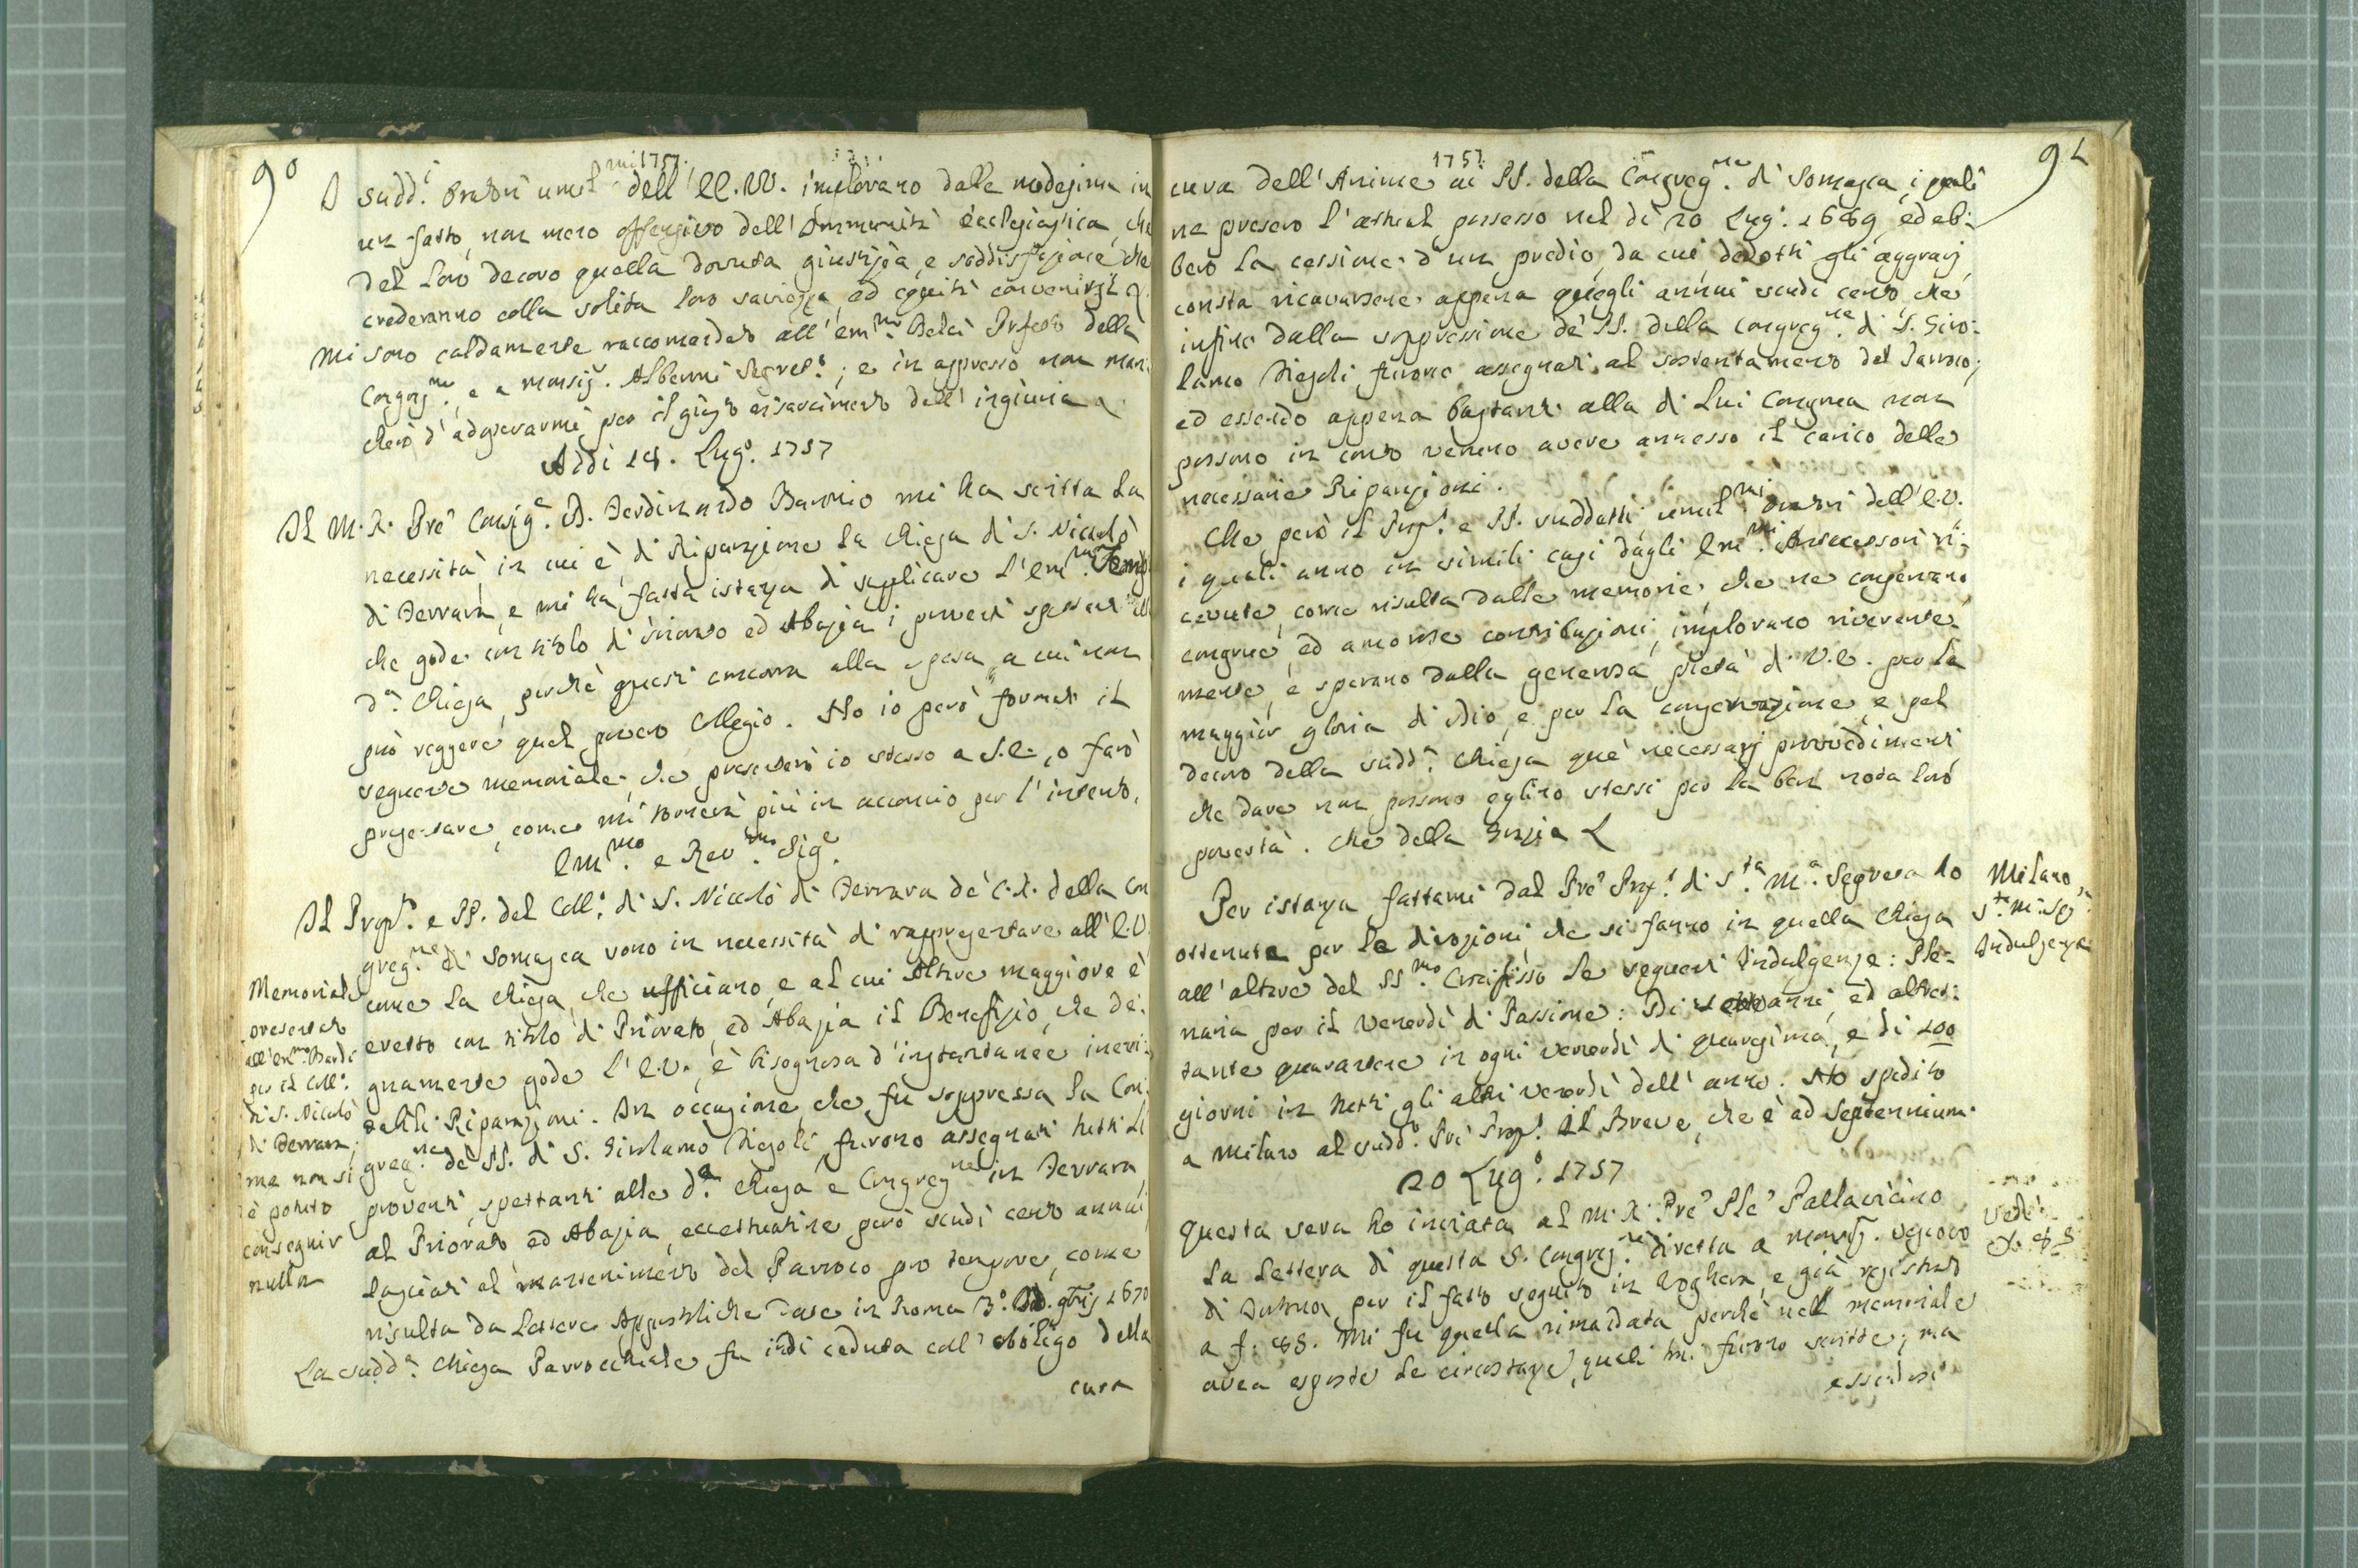 90
1757.
I sudd.i Oratori umil.mi dell' EE. VV. implorano dalle medesime in
un fatto, non meno offensivo dell' Immunità ecclesiastica, che
del loro decoro quella dovuta giustizia, e soddisfazione che
crederanno colla solita loro saviezza, ed equità convenirsi &.
Mi sono caldamente raccomandato all' Em.mo Prefetto della
Congreg.ne, e a monsig.r Segret.o; e in appresso non man:
cherò d' adoperarmi per il giusto risarcimento dell' ingiuria &
Addi 18. Lug.o 1757
Il M. R. Pre Consig.e D. Ferdinando Baronio mi ha scritta la
necessità, in cui è, di Riparazione la Chiesa di S. Niccolò
di Ferrara, e mi ha fatta istanza di supplicare l' Em.mo
che gode con titolo di Priorato ed Abazia i proventi spettanti alla
d.a Chiesa, perchè questi concorra alla spesa, a cui non
può reggere quel povero Collegio. Ho io però formato il
seguente memoriale, che presenterò io stesso a S. E., o farò
presentare, come mi tornerà più in acconcio per l' intento.
Em.mo e Rev.mo Sig.e
Il Prop.to e PP. del Coll.o di S. Niccolò di Ferrara de' C. R. della Con
greg.ne di Somasca sono in necessità di rappresentare all' E. V.
come la Chiesa, che ufficiano, e al cui Altare maggiore è
eretto con titolo di Priorato, ed Abazia il Benefizio, che de:
gnamente gode l' E. V., è bisognosa d' instantanee inevi:
tabili Riparazioni. In occasione, che fu soppressa la Con:
greg.ne de' PP. di S. Girolamo Fiesoli, furono assegnati tutti li
proventi, spettanti alla d.a Chiesa e Congreg.ne in Ferrara,
al Priorato ed Abazia, eccettuatine però scudi cento annui,
lasciati al mantenimento del Parroco pro tempore, come
risulta da Lettere Appostoliche date in Roma 3.o 1670
La sudd.a Chiesa Parrocchiale fu indi ceduta coll' obbligo della
cura
Memoriale
presentato
all' Em.mo
per il Coll.o
di S. Niccolò
di Ferrara;
ma non si
è potuto
conseguir
nulla
91
1757.
cura dell' Anime ai PP. della Congreg.ne di Somasca, i quali
ne presero l' attual possesso nel dì 20 Lug.o 1689, ed eb:
bero la cessione d' un predio, da cui dedotti gli aggravj,
consta ricavarsene appena quegli annui scudi cento, che
infine dalla soppressione de' PP. della Congreg.ne di S. Giro:
lamo Fiesoli furono assegnati al sostentamento del Parroco;
ed essendo appena bastanti alla di Lui Congrua non
possono in conto veruno avere annesso il carico delle
necessarie Riparazioni.
Che però il Prop.to e PP. suddetti umil.mi Oratori dell' E. V.
i quali anno in simili casi dagli Em.mi Antecessori ri:
cevute, come risulta dalle memorie, che ne conservano,
congrue, ed amorose contribuzioni, implorano riverente:
mente, e sperano dalla generosa pietà di V. E. per la
maggior gloria di Dio, e per la conservazione, e pel
decoro della sudd.a Chiesa que' necessarj provvedimenti
che dare non possono eglino stessi per la ben nota loro
povertà. Che della Grazia &
Per istanza fattami dal Pre Prop.to di S.ta M.a Segreta ho
ottenute per le divozioni, che si fanno in quella Chiesa
all' altare del SS.mo Crocifisso le seguenti Indulgenze: Ple:
naria per il Venerdì di Passione: Di sette anni, ed altret:
tante quarantene in ogni venerdì di quaresima, e di 100
giorni in tutti gli altri venerdì dell' anno. Ho spedito
a Milano al sudd.o Pre Prop.to il Breve, che è ad Septennium.
20 Lug.o 1757
Questa sera ho inviata al M. R. Pre Ple Pallavicino
la Lettera di questa S. Congreg.ne diretta a monsig. Vescovo
di Tortona per il fatto seguito in Voghera, e già registrato
a f. 88. Mi fu quella rimandata perchè nel memoriale
avea esposte le circostanze, quali mi furono scritte; ma
essendosi
Milano,
S.ta M.a Seg.a
Indulgenze
Vedi